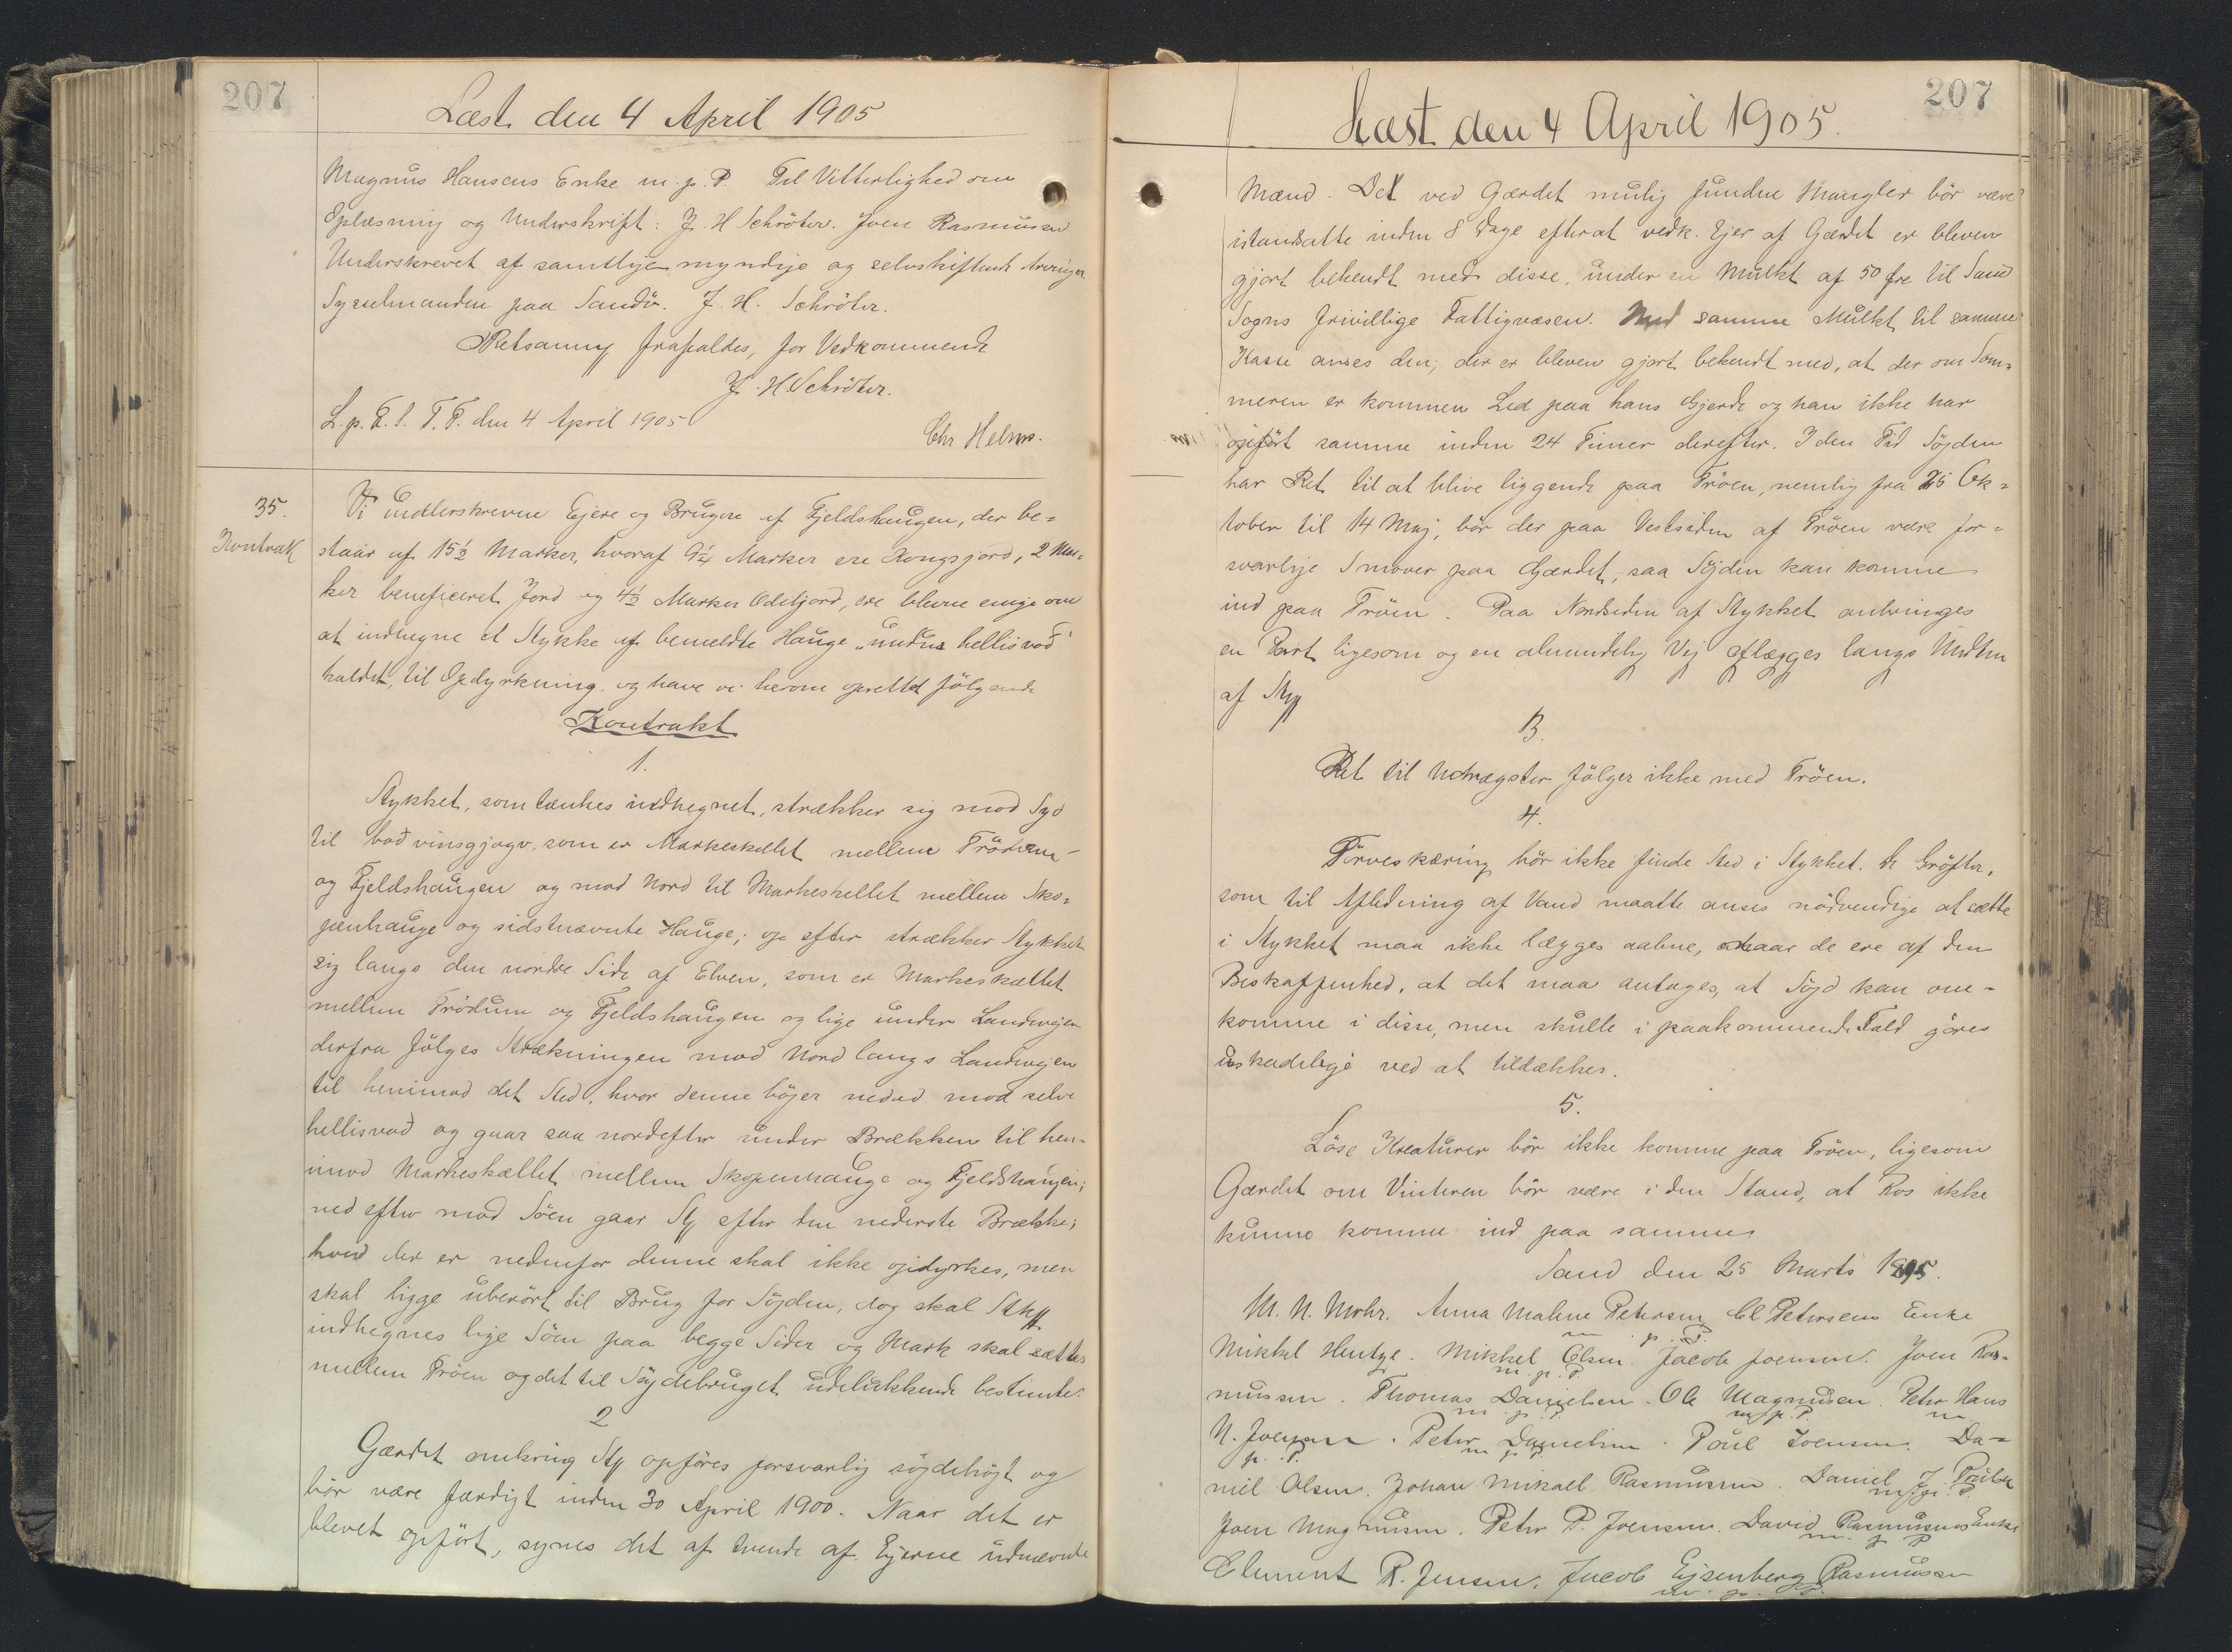 207
Læst den 4 April 1905
Magnus Hansens Enke m. p. P. Til Vitterlighed om
Oplæsning og Underskrift: J. H Schröter. Joen Rasmussen
Underskrevet af samtlige myndige og selvskiftende Arvinger
Sysselmanden paa Sandö. J. H. Schröter.
Retsanmg frafaldes, for Vedkommende
J. H Schröter.
L. p. F. s. T. F. den 4 April 1905
Chr Helms.
35.
Kontrak
Vi undterskrevne Ejere og Brugere af Fjeldshaugen, der be-
staar af 15½ Marker, hvoraf 9¼ Marker ere Kongsjord, 2 Mar-
ker beneficeret Jord og 4½ Marker Odelsjord, ere blevne enige om
at indhegne et Stykke af bemeldte Hauge „undir hellisvað“
kaldet, til Opdyrkning, og have vi herom oprettet fölgende
Kontrakt
1.
Stykket, som tænkes indhegnet, strækker sig mod Syd
til boðvinsgjogv, som er Markeskellet mellem Trödum
og Fjeldshaugen og mod Nord til Markeskellet mellem Sko-
penhauge og sidstnævnte Hauge; op efter strækker Stykket
sig langs den nordre Side af Elven, som er Markeskællet
mellem Trödum og Fjeldshaugen og lige under Landevejen
derfra fölges Strækningen mod Nord langs Landevejen
til henimod det Sted, hvor denne böjer nedad mod selve
hellisvað og gaar saa nordefter under Brækken til hen-
imod Markeskællet mellem Skopenhauge og Fjeldshaugen;
ned efter mod Söen gaar St// efter den nederste Brække;
hvad der er nedenfor denne skal ikke opdyrkes, men
skal ligge uberört til Brug for Söjden, dog skal Sty//
indhegnes lige Söen paa begge Sider og Mark skal sættes
mellem Tröen og det til Söjdebruget udelukkende bestimte.
2
Gærdet omkring St// opföres forsvarlig söjdehöjt og
bör være færdigt inden 30 April 1900. Naar det er
blevet opfört, synes det af tvende af Ejerne udnævnte
207
Læst den 4 April 1905.
Mænd. Det ved Gærdet mulig fundne Mangler bör være
istandsatte inden 8 Dage efterat vedk. Ejer af Gærdet er bleven
gjort bekendt med disse, under en Mulkt af 50 Øre til Sand
Sogns frivillige Fattigvæsen. Med samme Mulkt til samme
Kasse anses den, der er bleven gjort bekendt med, at der om Som-
meren er kommen Led paa hans Gjerde og han ikke har
opfört samme inden 24 Timer derefter. I den Tid Söjden
har Ret til at blive liggende paa Tröen, nemlig fra 25 Ok-
tober til 14 Maj, bör der paa Vestsiden af Tröen være for-
svarlige Smover paa Gærdet, saa Söjden kan komme
ind paa Tröen. Paa Nordsiden af Stykket anbringes
en Port ligesom og en almindelig Vej aflægges langs Midten
af Sty//
3.
Ret til Udrægster fölger ikke med Tröen.
4.
Törveskæring bör ikke finde Sted i Stykket. De Gröfter,
som til Afledning af Vand maatte anses nödvendige at sætte
i Stykket maa ikke lægges aabne, naar de ere af den
Beskaffenhed, at det maa antages, at Söjd kan om-
komme i disse, men skulle i paakommende Fald göres
uskadelige ved at tildækkes.
5.
Löse Kreaturer bör ikke komme paa Tröen, ligesom
Gærdet om Vinteren bör være i den Stand, at Ros ikke
kunne komme ind paa samme
Sand den 25 Marts 1895.
M. N. Mohr. Anna Malene Petersen Cl Petersens Enke
m. p. P.
Mikkel Hentze. Mikkel Olsen. Jacob Joensen. Joen Ras-
m. p. P
mussen. Thomas Danielsen. Ole Magnusen. Peter Hans
m. p. P. m. p. P. m.
N. Joensen. Peter Danielsen. Poul Joensen. Da-
p. P. m p P.
niel Olsen. Johan Mikael Rasmussen. Daniel J.
m. p. P.
Joen Magnusen. Peter P. Joensen. David Rasmussens Enke
m. p P
Clement R. Jensen. Jacob Ejsenberg Rasmussen
m. p. P.